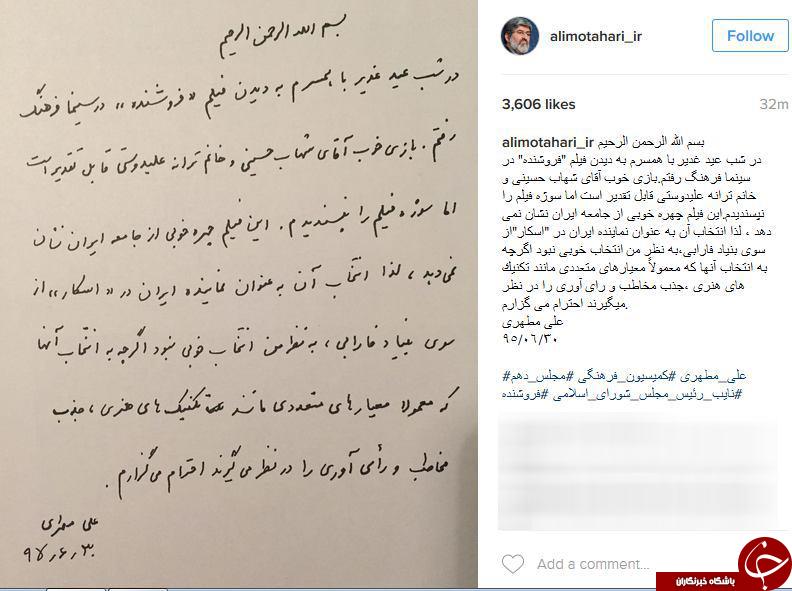 بسم الله الرحمن الرحیم
در شب عید غدیر با همسرم به دیدن فیلم «فروشنده» در سینما فرهنگ
رفتم. بازی خوب آقای شهاب حسینی و خانم ترانه علیدوستی قابل تقدیر است
اما سوژه فیلم را نپسندیدم. این فیلم چهره خوبی از جامعه ایران نشان
نمی‌دهد، لذا انتخاب آن به عنوان نماینده ایران در «اسکار» از
سوی بنیاد فارابی، به نظر من انتخاب خوبی نبود اگرچه به انتخاب آنها
که معمولا معیارهای متعددی مانند تکنیک‌های هنری، جذب
مخاطب و رأی آوری را در نظر می‌گیرند احترام می‌گزارم.
علی مطهری
۹۵٫۶٫۳۰
alimotahari_ir
Follow
3,606 likes
32m
alimotahari_ir بسم الله الرحمن الرحیم
در شب عید غدیر با همسرم به دیدن فیلم "فروشنده" در
سینما فرهنگ رفتم.بازی خوب آقای شهاب حسینی و
خانم ترانه علیدوستی قابل تقدیر است اما سوژه فیلم را
نپسندیدم.این فیلم چهره خوبی از جامعه ایران نشان نمی
دهد ، لذا انتخاب آن به عنوان نماینده ایران در "اسکار"از
سوی بنیاد فارابی،به نظر من انتخاب خوبی نبود اگرچه
به انتخاب آنها که معمولاً معیارهای متعددی مانند تکنیک
های هنری ،جذب مخاطب و رای آوری را در نظر
میگیرند احترام می گزارم.
علی مطهری
۹۵/۰۶/۳۰
#علی_مطهری #کمیسیون_فرهنگی #مجلس_دهم
#نایب_رئیس_مجلس_شورای_اسلامی #فروشنده
Add a comment...
باشگاه خبرنگاران